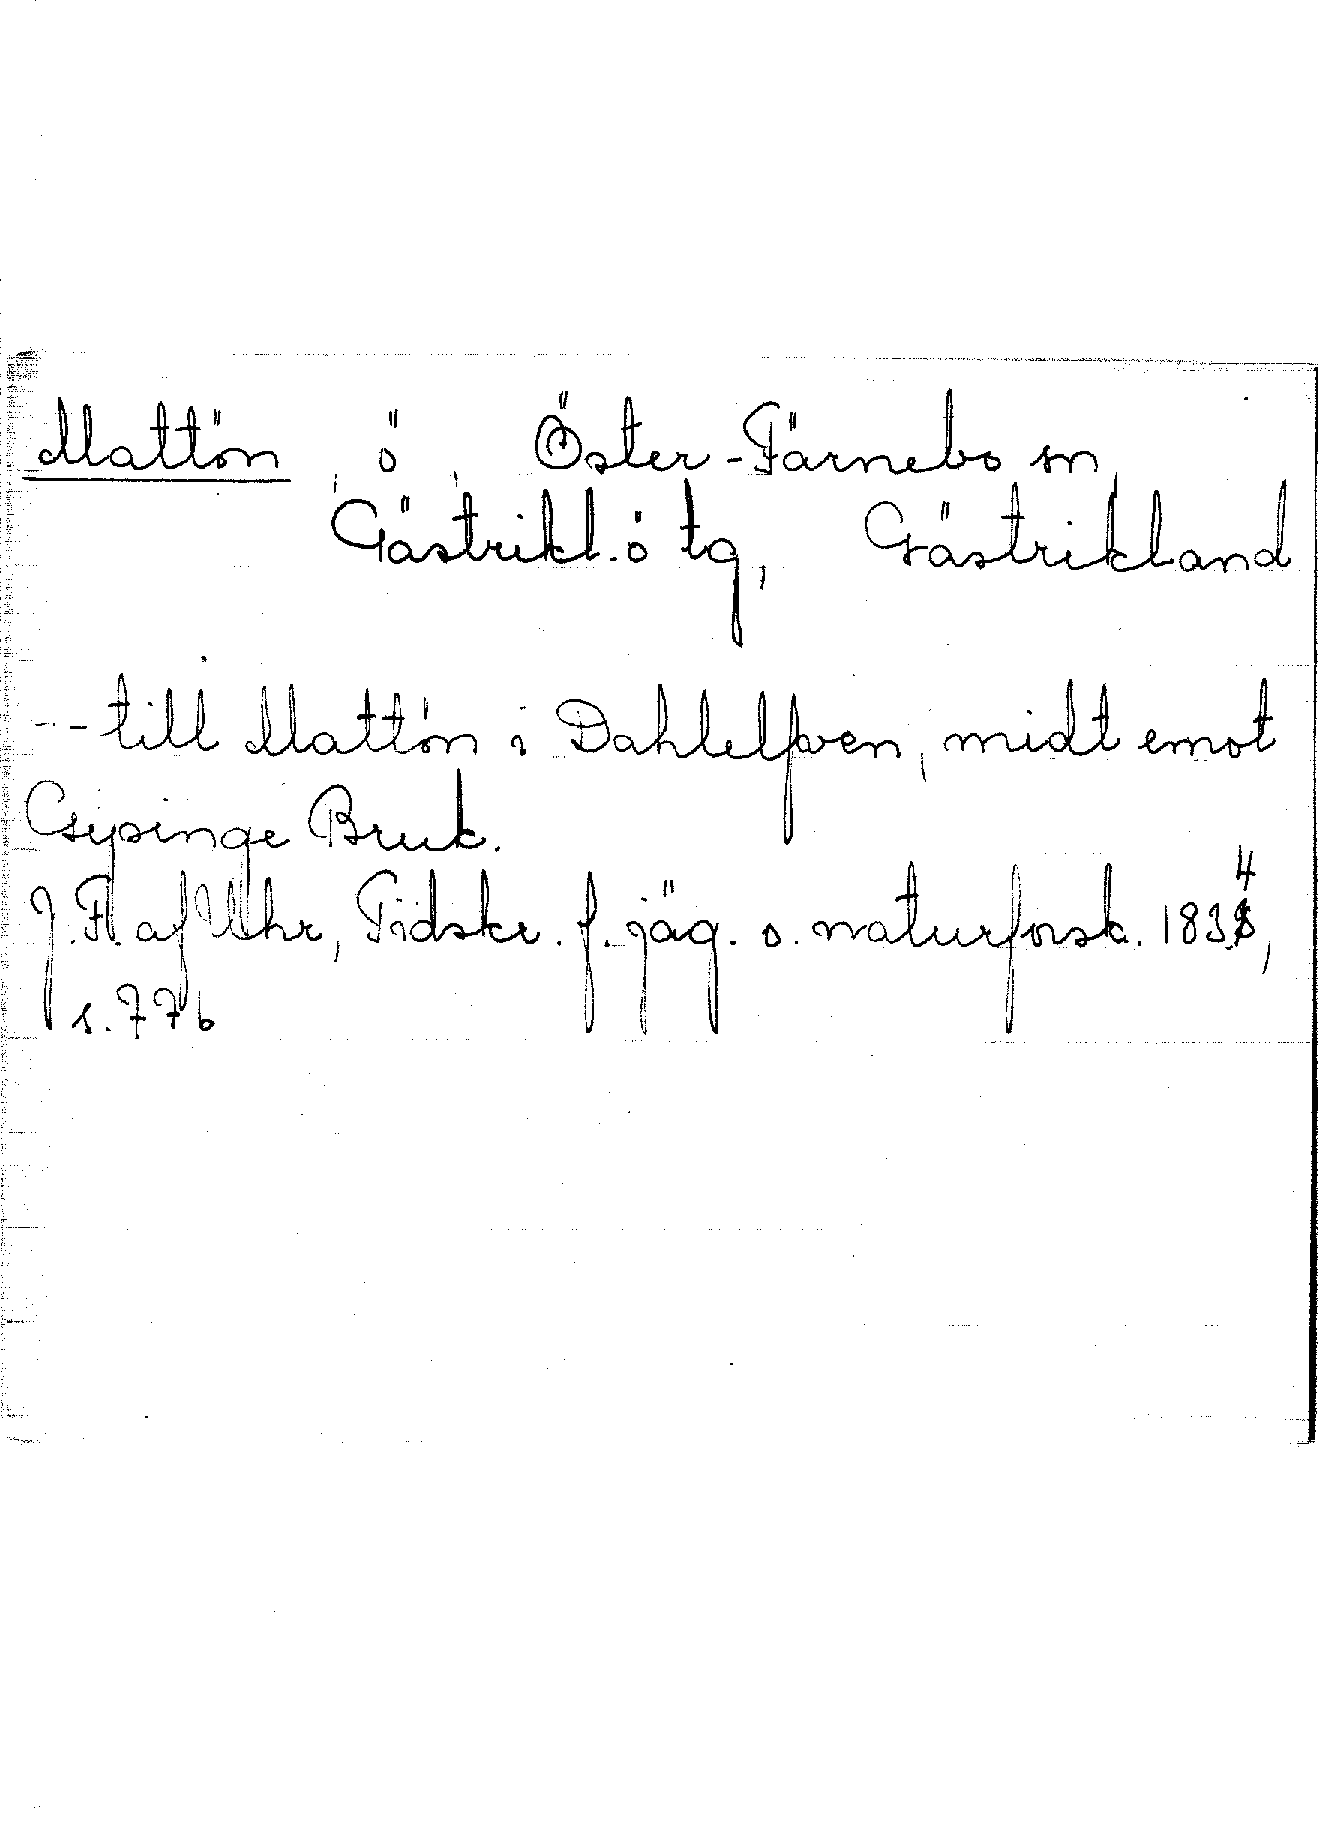 Mattön, ö, Öster-Färnebo sn,
Gästrikl. ö tg, Gästrikland
--- till Mattön i Dahlelfven, midt emot
Gysinge Bruk.
J. Fl. af Uhr, Tidskr. f. jäg. o. naturforsk. 1834,
s. 776